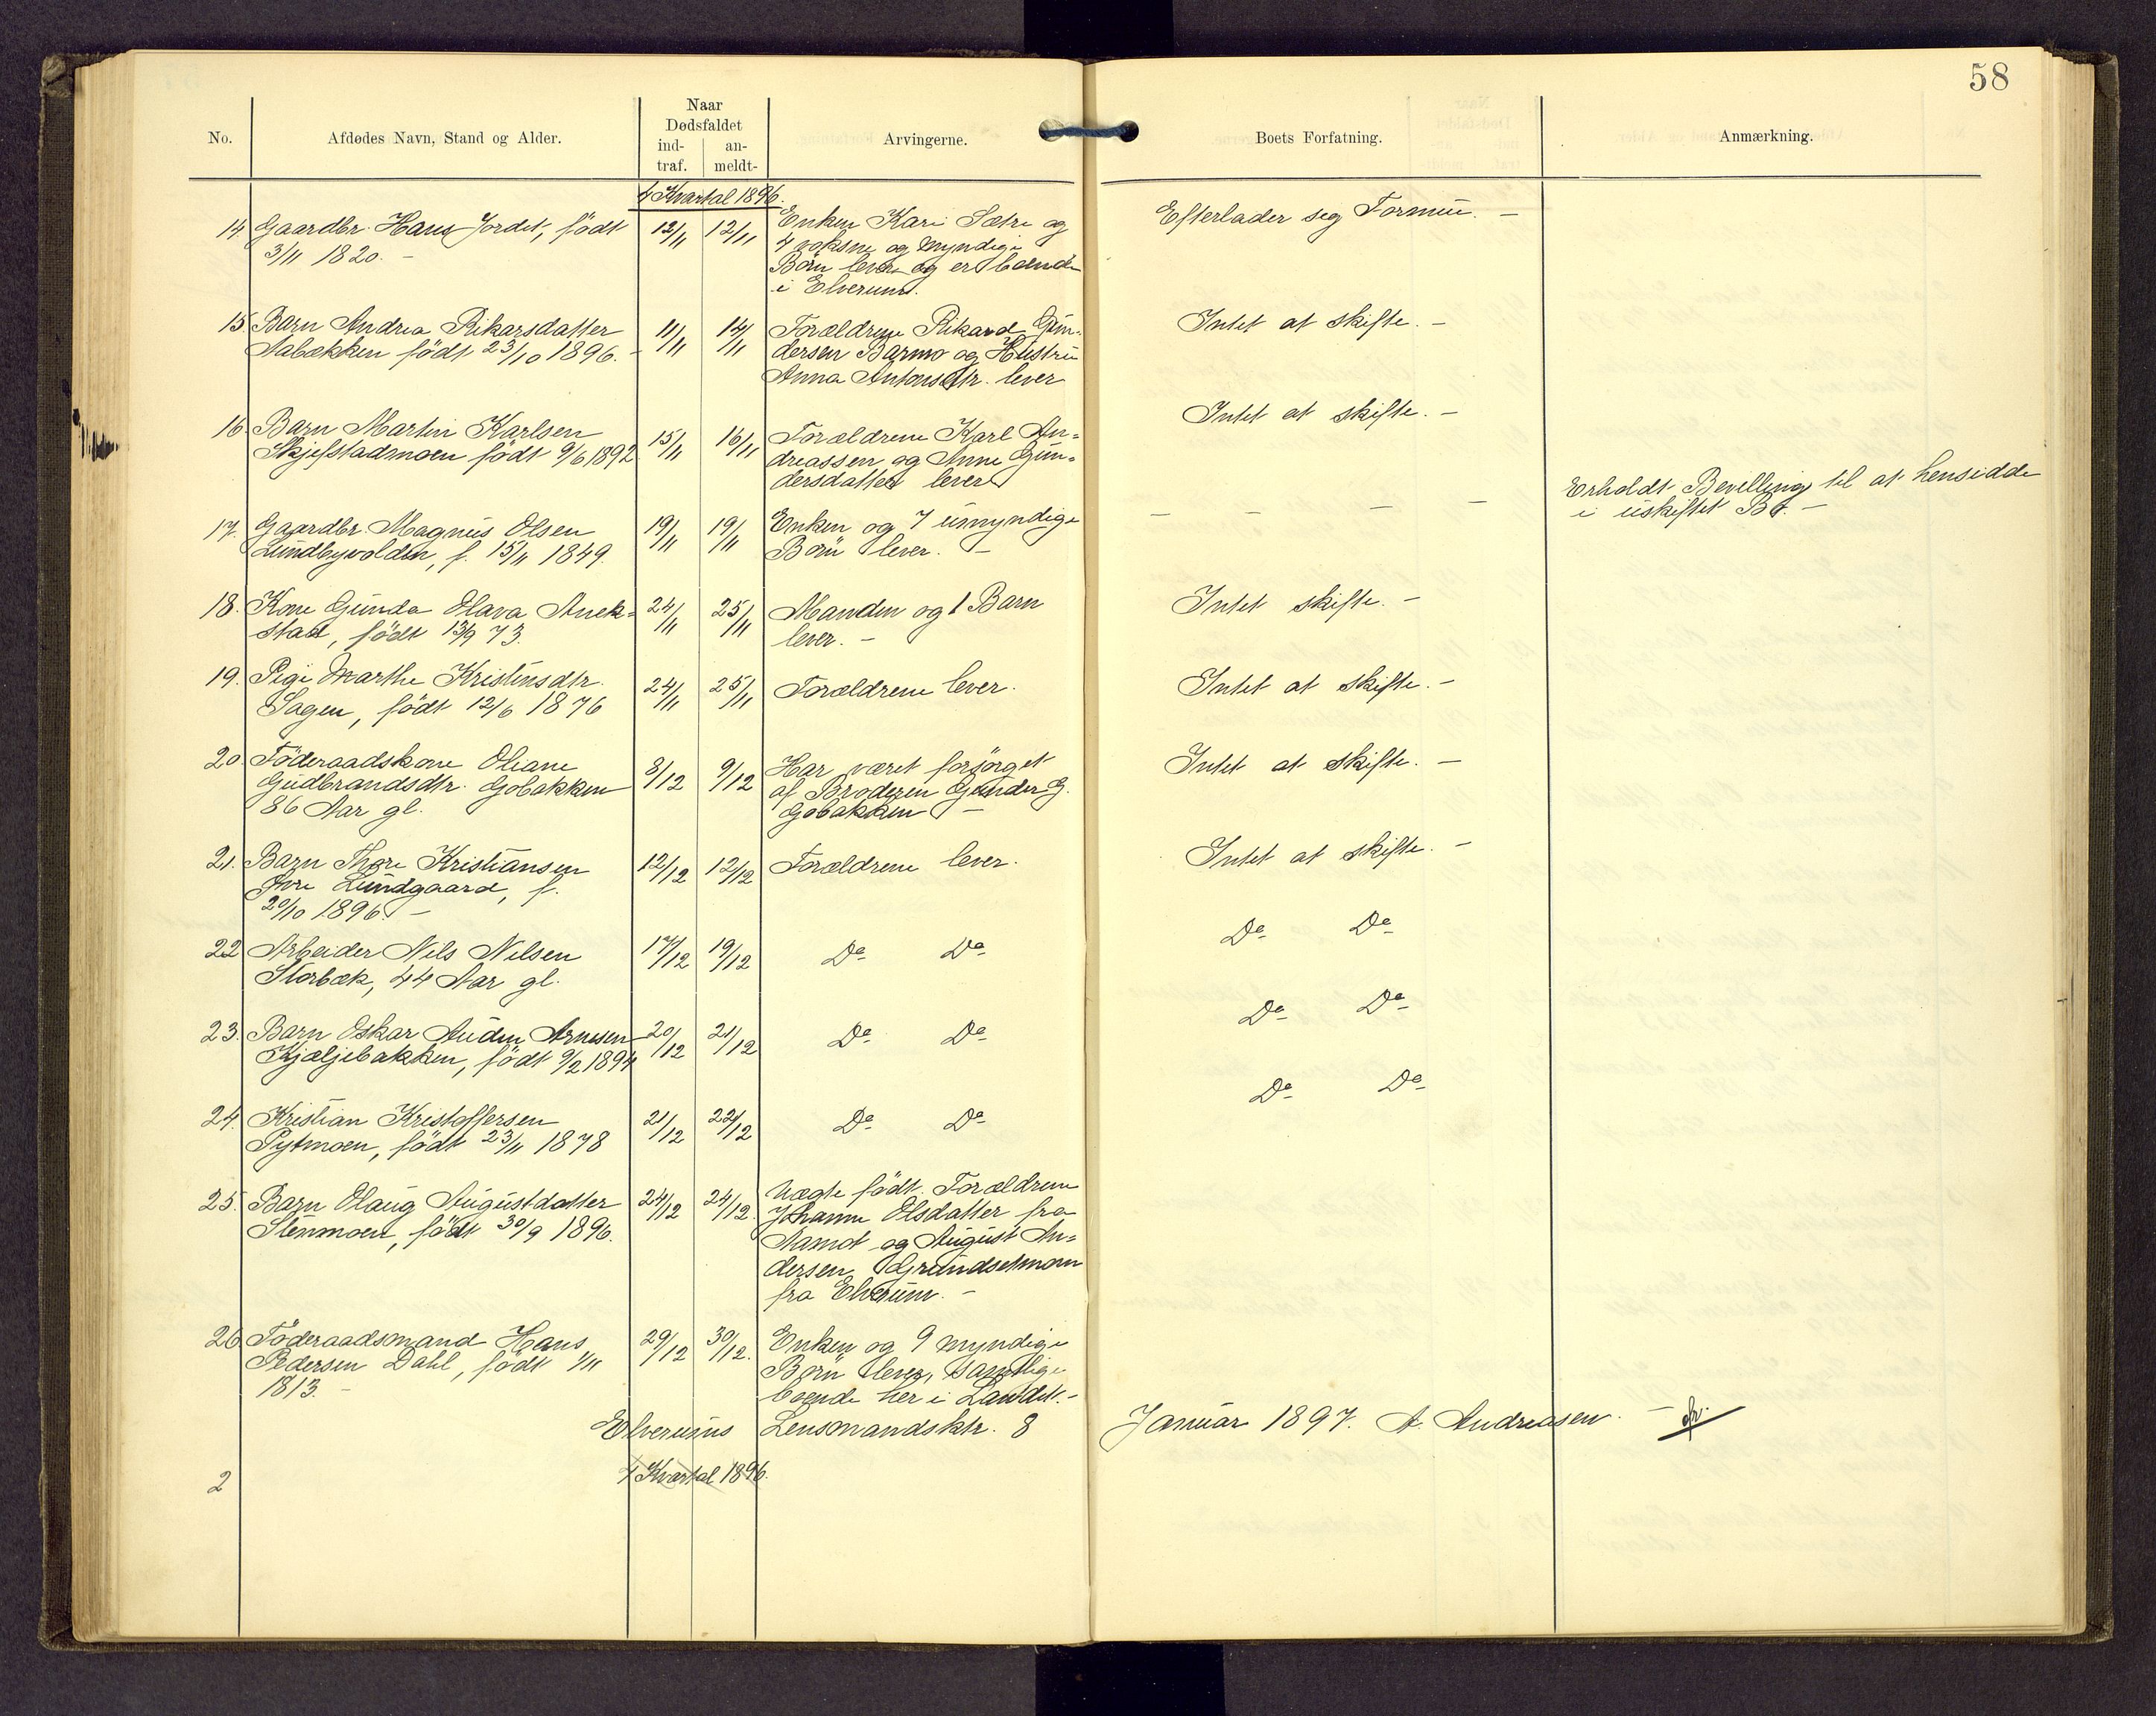 58
No.
Afdødes Navn, Stand og Alder.
Naar
Dødsfaldet
ind-
traf.
an-
meldt-
Arvingerne.
Boets Forfatning.
Anmærkning.
4 Kvartal 1896.
14 Gaardbr. Hans Jordet, født 12/11 12/11 Enken Kari Sætre og Efterlader seg Formue. -
3/11 1820. - 4 voksne og myndige
Børn lever og er boende
i Elverum.
15. Barn Andrea Rikarsdatter 11/11 14/11 Forældrene Rikard Gun- Intet at skifte. -
Aabækken født 23/10 1896. - dersen Barmo og Hustru
Anna Antonsdtr. lever
16. Barn Martin Karlsen 15/11 16/11 Forældrene Karl An= Intet at skifte. -
Skjefstadmoen født 9/6 1892 dreassen og Anne Gun=
dersdatter lever
17. Gaardbr. Magnus Olsen 19/11 19/11 Enken og 7 umyndige - - - - Erholdt Bevilling til at hensidde
Lundbyvolden, f. 15/11 1849. Børn lever. - i uskiftet Bo. -
18. Kone Gunda Olava Anek= 24/11 25/11 Manden og 1 Barn Intet skifte. -
stad, født 13/9 73. lever. -
19. Pige Marthe Kristinsdtr. 24/11 25/11 Forældrene lever. Intet at skifte. -
Sagen, født 12/6 1876
20. Føderaadskone Oliane 8/12 9/12 Har været forsørget Intet at skifte. -
Gudbrandsdtr. Gobakken af Broderen Gunder G.
86 Aar gl. Gobakken -
21. Barn Thore Kristiansen 12/12 12/12 Forældrene lever. Intet at skifte. -
Lundgaard, f.
20/10 1896. -
22 Arbeider Nils Nilsen 17/12 19/12 Do Do Do Do
Storbæk, 44 Aar gl.
23. Barn Oskar Auden Arnesen 20/12 21/12 Do Do Do Do
Kjæljebakken, født 9/2 1894
24. Kristian Kristoffersen 21/12 22/12 Do Do Do Do
Pytmoen, født 23/11 1878
25. Barn Olaug Augustdatter 24/12 24/12. Uægte født. Forældrene
Stenmoen, født 30/9 1896. Johanne Olsdatter fra
Aamot og August An=
dersen Grundsetmoen
fra Elverum. -
26. Føderaadsmand Hans 29/12 30/12. Enken og 9 myndige
Pedersen Dahl, født 1/11 Børn lever, samtlige
1813. - boende her i Landet. -
Elverums Lensmandsktr. 8 Januar 1897. A. Andreasen. -
4 Kvartal 1896.
2